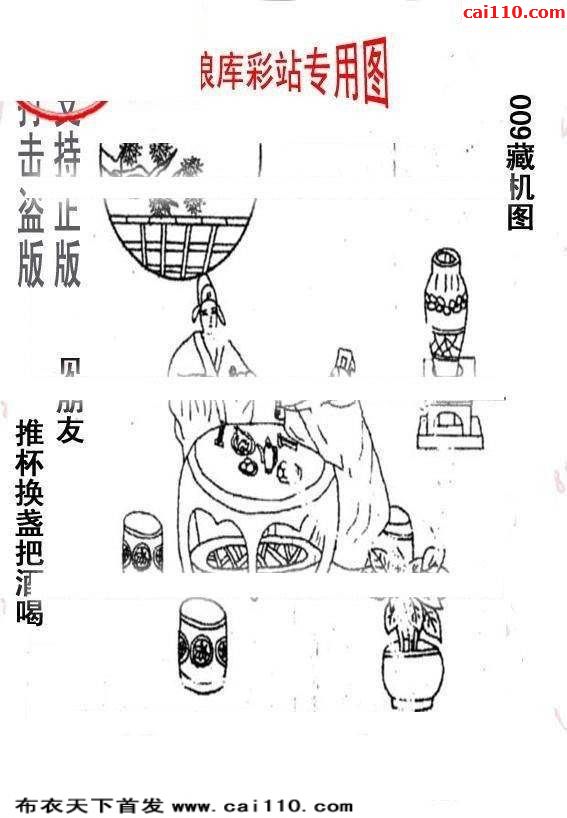 cai110.com
库彩站专用图
009藏机图
支持正版
打击盗版
见朋友
推杯换盏把酒喝
布衣天下首发 www.cai110.com